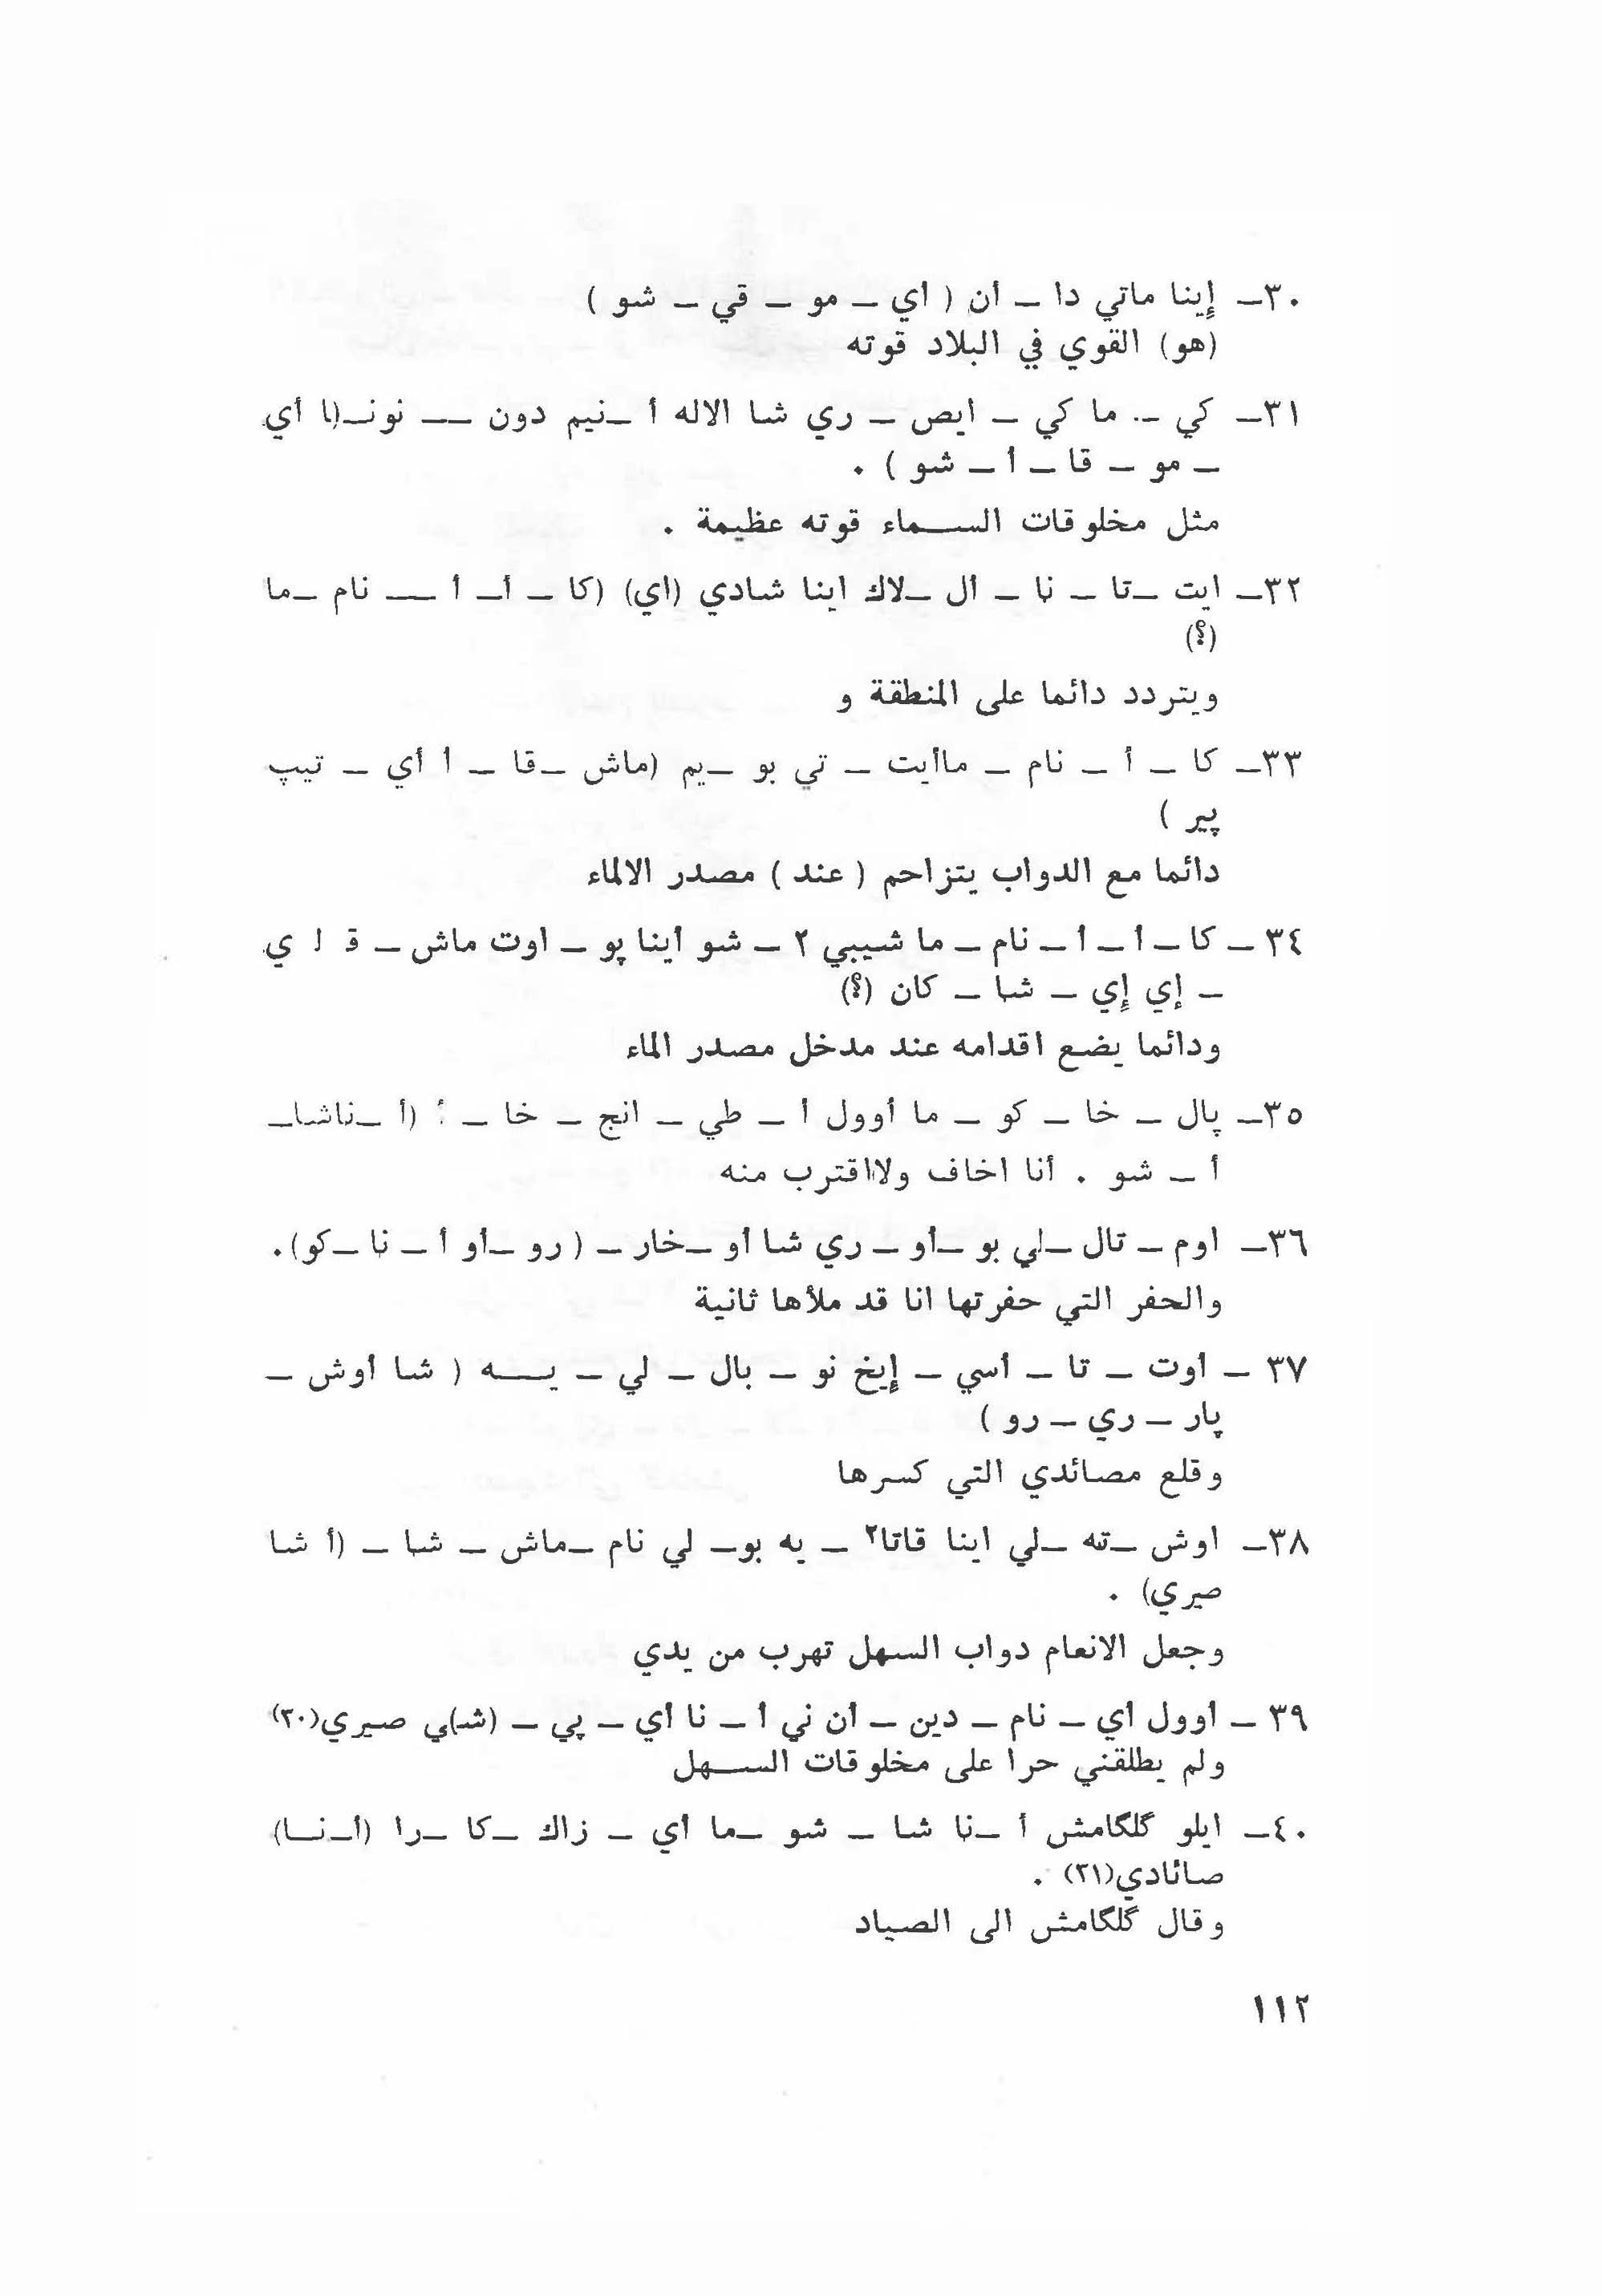 ٣٠ـ إينا ماتي دا ـ ان ( اي ـ مو ـ قي ـ شو )
(هو) القوي في البلاد قوته
٣١ـ كي ـ ما كي ـ ايص ـ ري شا الاله أ ـنيم دون ـــ نونـ(ا أي
ـ مو ـ قا ـ أ ـ شو ) .
مثل مخلوقات الســماء قوته عظيمة .
٣٢ـ ايت ـتا ـ نا ـ أل ـلاك اينا شادي (اي) (كا ـ أـ أ ـــ نام ـما
(؟)
ويتردد دائما على المنطقة و
٣٣ـ كا ـ أ ـ نام ـ ماأيت ـ تي بو ـيم (ماش ـقا ـ أ أي ـ تيپ
پير )
دائما مع الدواب يتزاحم ( عند ) مصدر الالماء
٣٤ ـ كا ـ أ ـ أ ـ نام ـ ما شيبي ٢ ـ شو أينا پو ـ اوت ماش ـ ق ا ي
ـ إي إي ـ شا ـ كان (؟)
ودائما يضع اقدامه عند مدخل مصدر الماء
٣٥ـ پال ـ خا ـ كو ـ ما أوول أ ـ طي ـ انج ـ خا ـ أ (أ ـناشاـ
أ ـ شو . أنا اخاف ولااقترب منه
٣٦ـ اوم ـ تال ـلي بو ـأو ـ ري شا أو ـخار ـ ( رو ـأو أ ـ نا ـكو).
والحفر التي حفرتها انا قد ملأها ثانية
٣٧ ـ أوت ـ تا ـ أسي ـ إيخ نو ـ بال ـ لي ـ يــه ( شا أوش ـ
پار ـ ري ـ رو )
وقلع مصائدي التي كسرها
٣٨ـ اوش ـته ـلي اينا قاتا٢ ـ يه بوـ لي نام ـماش ـ شا ـ (أ شا
صيري) .
وجعل الانعام دواب السهل تهرب من يدي
٣٩ ـ أوول أي ـ نام ـ دين ـ أن ني أ ـ نا أي ـ پي ـ (شـ)ي صيري(٢٠)
ولم يطلقني حرا على مخلوقات الســهل
٤٠ـ ايلو گلگامش أ ـنا شا ـ شو ـما أي ـ زاك ـكا ـرا (أـنـا)
صائادي(٢١) .
وقال گلگامش الى الصياد
١١٢